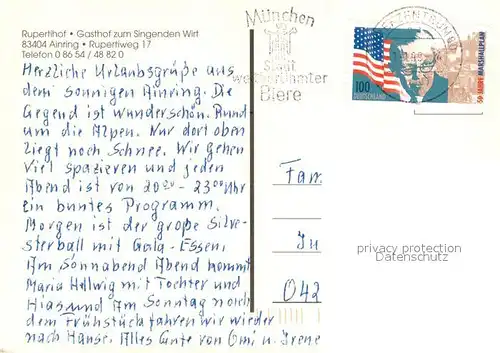 Rupertihof • Gasthof zum Singenden Wirt
83404 Ainring • Rupertiweg 17
Telefon 0 86 54 / 48 82 0
Herzliche Urlaubsgrüße aus
dem Sonnigen Ainring. Die
Gegend ist wunderschön. Rund
um die Alpen. Nur dort oben
liegt noch Schnee. Wir gehen
viel spazieren und jeden
Abend ist von 20.00 - 23.00 Uhr
ein buntes Programm.
Morgen ist der große Silve-
sterball mit Gala-Essen.
Am Sonnabend Abend kommt
Maria Hellwig mit Tochter und
Hias und Am Sonntag nach
dem Frühstück fahren wir wieder
nach Hause. Alles Gute von Omi u. Irene
München
Stadt
weltberühmter
Biere
BRIEFZENTRUM
100
DEUTSCHLAND
50 JAHRE MARSHALLPLAN
Fam.
In
042
privacy protection
Datenschutz